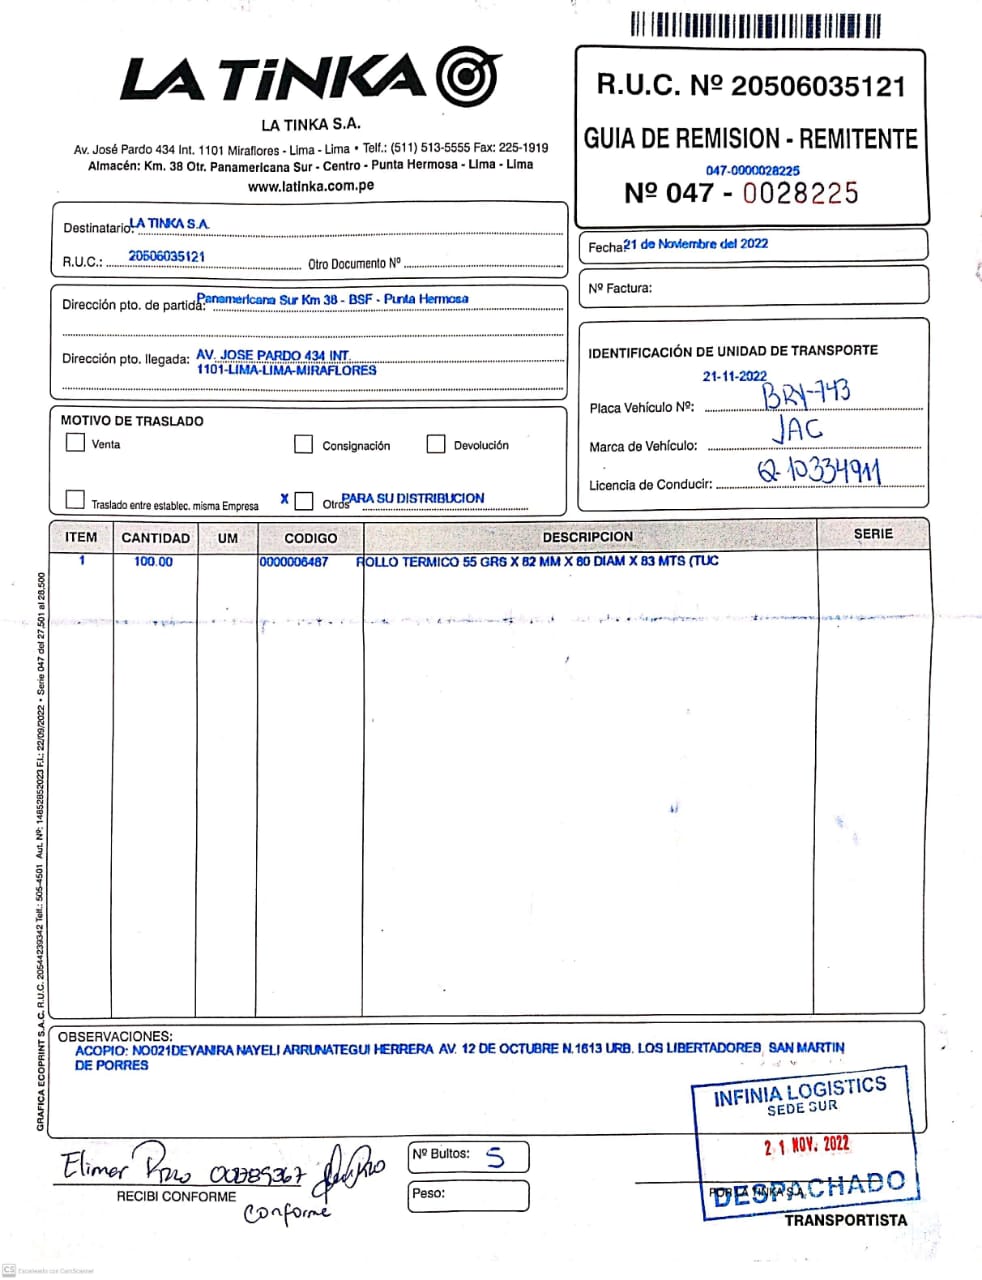 LA TiNKA
LA TINKA S.A.
Av. José Pardo 434 Int. 1101 Miraflores - Lima - Lima • Telf.: (511) 513-5555 Fax: 225-1919
Almacén: Km. 38 Otr. Panamericana Sur - Centro - Punta Hermosa - Lima - Lima
www.latinka.com.pe
R.U.C. Nº 20506035121
GUIA DE REMISION - REMITENTE
047-0000028225
Nº 047 - 0028225
Destinatario: LA TINKA S.A.
R.U.C.: 20506035121 Otro Documento Nº
Fecha: 21 de Noviembre del 2022
Nº Factura:
Dirección pto. de partida: Panamericana Sur Km 38 - BSF - Punta Hermosa
Dirección pto. llegada: AV. JOSE PARDO 434 INT.
1101-LIMA-LIMA-MIRAFLORES
IDENTIFICACIÓN DE UNIDAD DE TRANSPORTE
21-11-2022
Placa Vehículo Nº: BRY-743
Marca de Vehículo: JAC
Licencia de Conducir: Q-10334911
MOTIVO DE TRASLADO
Venta Consignación Devolución
Traslado entre establec. misma Empresa X Otros PARA SU DISTRIBUCION
ITEM CANTIDAD UM CODIGO DESCRIPCION SERIE
1 100.00 0000006487 ROLLO TERMICO 55 GRS X 82 MM X 80 DIAM X 83 MTS (TUC
GRAFICA ECOPRINT S.A.C. R.U.C. 20544239342 Telf.: 505-4501 Aut. Nº: 14852852023 F.I.: 22/09/2022 • Serie 047 del 27,501 al 28,500
OBSERVACIONES:
ACOPIO: NO021DEYANIRA NAYELI ARRUNATEGUI HERRERA AV. 12 DE OCTUBRE N.1613 URB. LOS LIBERTADORES, SAN MARTIN
DE PORRES
INFINIA LOGISTICS
SEDE SUR
21 NOV. 2022
DESPACHADO
Elimer
RECIBI CONFORME
Conforme
Nº Bultos: 5
Peso:
POR LA TINKA S.A.
TRANSPORTISTA
CS Escaneado con CamScanner